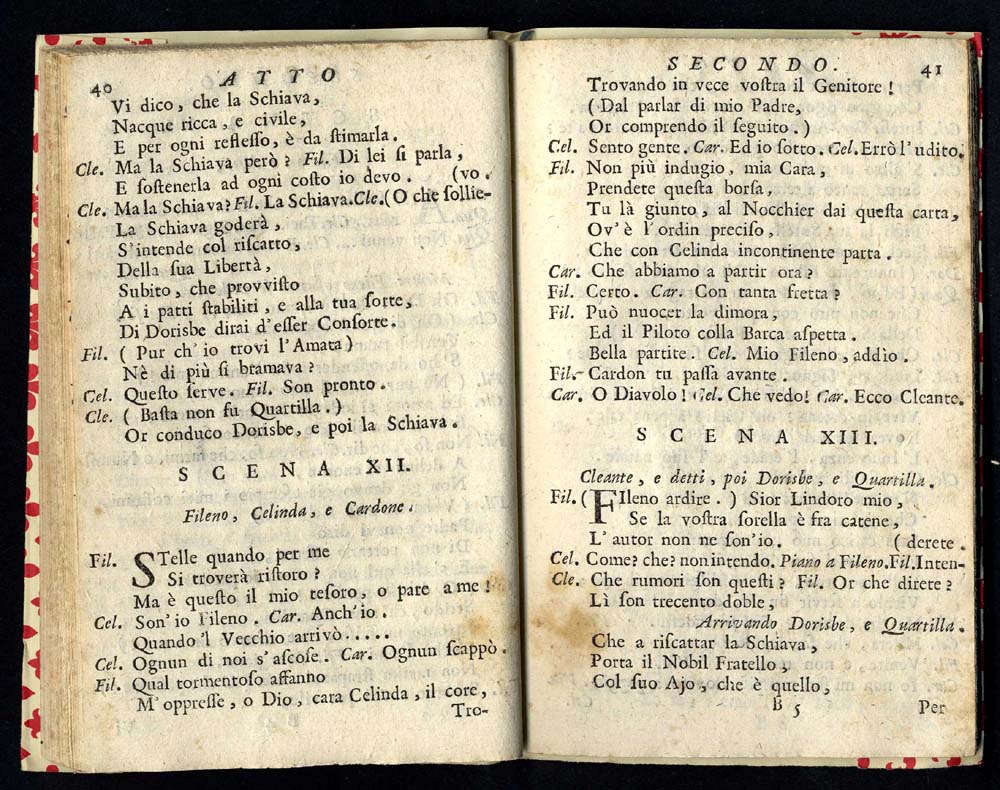 40 ATTO
Vi dico, che la Schiava,
Nacque ricca, e civile,
E per ogni reflesso, è da stimarla.
Cle. Ma la Schiava però? Fil. Di lei si parla,
E sostenerla ad ogni costo io devo. (vo.
Cle. Ma la Schiava? Fil. La Schiava. Cle. (O che sollie-
La Schiava goderà,
S'intende col riscatto,
Della sua Libertà,
Subito, che provvisto
A i patti stabiliti, e alla tua sorte,
Di Dorisbe dirai d'esser Consorte.
Fil. ( Pur ch'io trovi l'Amata)
Nè di più si bramava?
Cel. Questo serve. Fil. Son pronto.
Cle. ( Basta non fu Quartilla. )
Or conduco Dorisbe, e poi la Schiava.
SCENA XII.
Fileno, Celinda, e Cardone.
Fil. STelle quando per me
Si troverà ristoro?
Ma è questo il mio tesoro, o pare a me!
Cel. Son'io Fileno. Car. Anch'io.
Quando 'l Vecchio arrivò.....
Cel. Ognun di noi s'ascose. Car. Ognun scappò.
Fil. Qual tormentoso affanno
M'oppresse, o Dio, cara Celinda, il core,
Tro-
SECONDO. 41
Trovando in vece vostra il Genitore!
( Dal parlar di mio Padre,
Or comprendo il seguito. )
Cel. Sento gente. Car. Ed io sotto. Cel. Errò l'udito.
Fil. Non più indugio, mia Cara,
Prendete questa borsa,
Tu là giunto, al Nocchier dai questa carta,
Ov'è l'ordin preciso,
Che con Celinda incontinente parta.
Car. Che abbiamo a partir ora?
Fil. Certo. Car. Con tanta fretta?
Fil. Può nuocer la dimora,
Ed il Piloto colla Barca aspetta.
Bella partite. Cel. Mio Fileno, addio.
Fil. Cardon tu passa avante.
Car. O Diavolo! Cel. Che vedo! Car. Ecco Cleante.
SCENA XIII.
Cleante, e detti, poi Dorisbe, e Quartilla.
Fil. ( FIleno ardire. ) Sior Lindoro mio,
Se la vostra sorella è fra catene,
L'autor non ne son'io. (derete.
Cel. Come? che? non intendo. Piano a Fileno. Fil. Inten-
Cle. Che rumori son questi? Fil. Or che direte?
Lì son trecento doble,
Arrivando Dorisbe, e Quartilla.
Che a riscattar la Schiava,
Porta il Nobil Fratello,
Col suo Ajo, che è quello,
B 5 Per